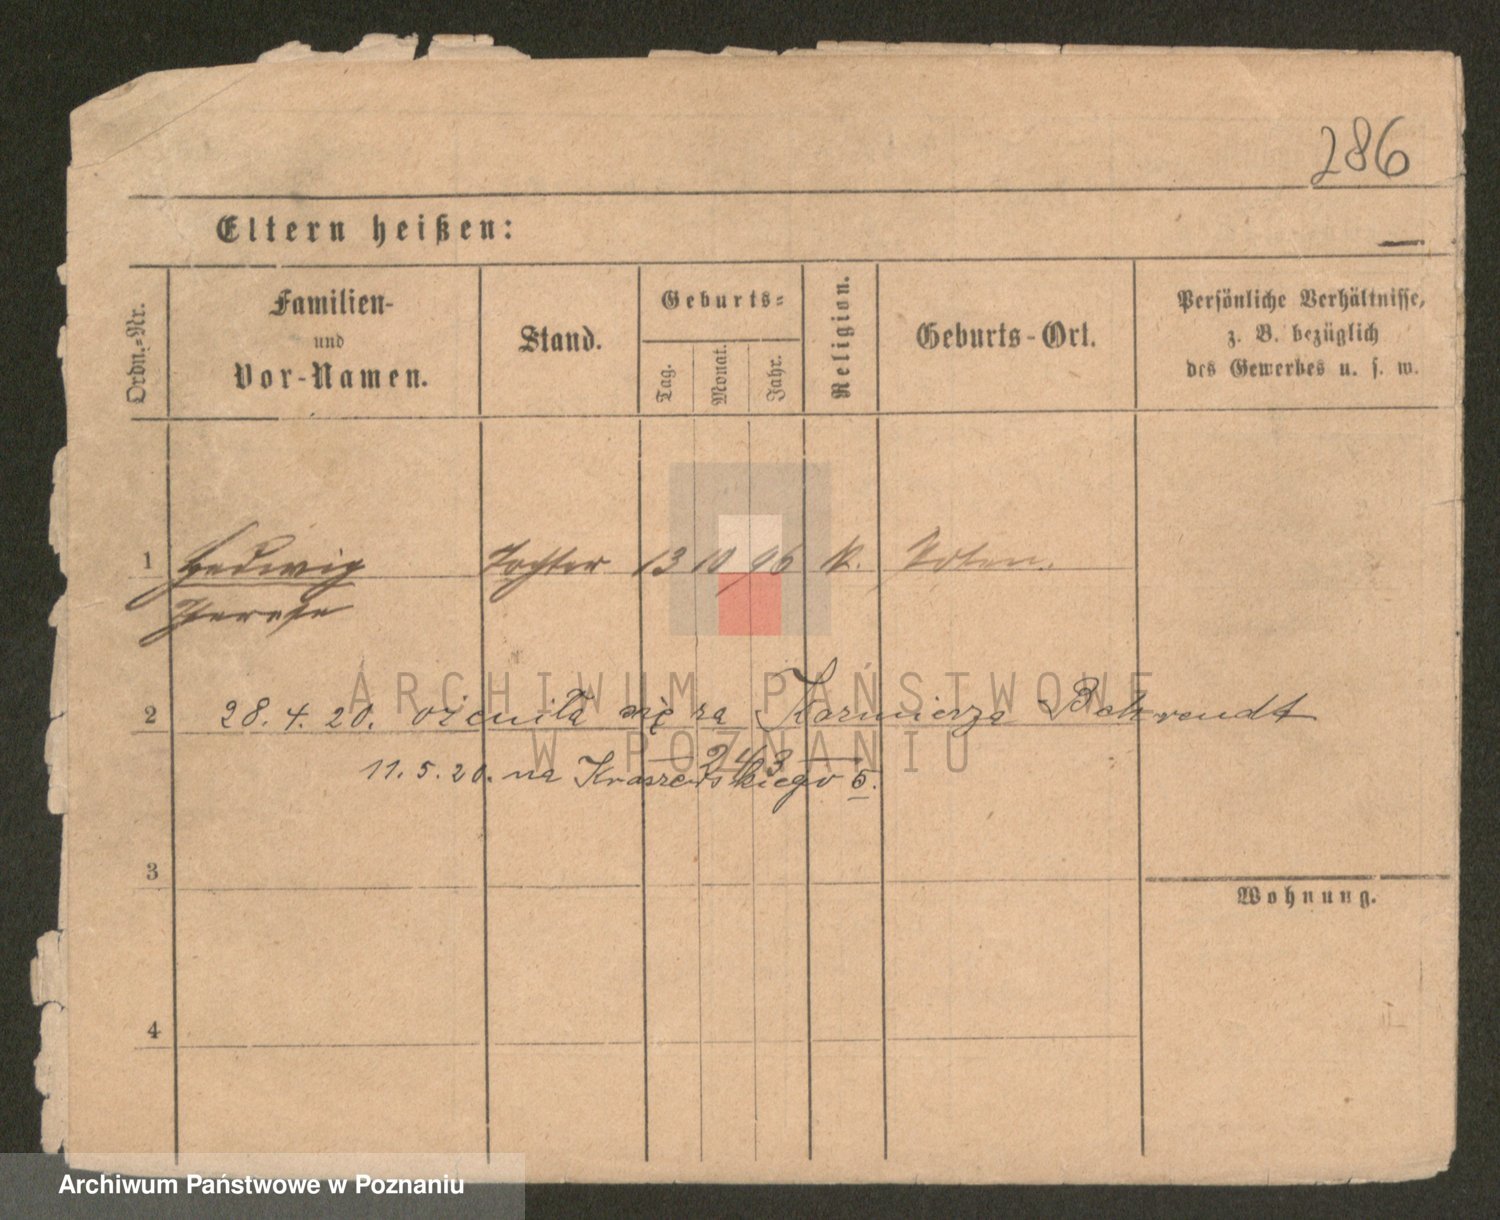 286
Eltern heißen:
Ordn.=Nr.
Familien-
und
Vor-Namen.
Stand.
Geburts=
Tag.
Monat.
Jahr.
Religion.
Geburts-Ort.
Persönliche Verhältnisse,
z. B. bezüglich
des Gewerbes u. s. w.
1 Hedwig Tochter 13 10 96 k. Posen.
Therese
ARCHIWUM PAŃSTWOWE
2 28. 4. 20. ożeniła się za Kazmierza Behrendt
W POZNANIU
— 243 —
11. 5. 20. na Kraszewskiego 5.
3
Wohnung.
4
Archiwum Państwowe w Poznaniu